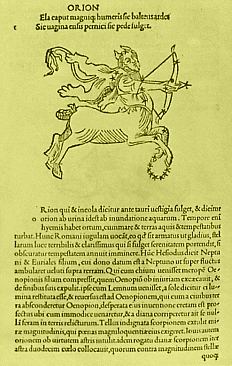 ORION
Ela caput magnisq; humeris sic balteus ardet
Sic uagina ensis pernici sic pede fulget.
Rion qui & incola dicitur ante tauri uestigia fulget, & dicitur
o orion ab urina idest ab inundatione aquarum. Tempore enim
hyemis habet ortum, cum mare & terras aquis & tempestatibus
turbat. Hunc Romani iugulam uocāt, eo q̄ sit armatus ut gladius, stel
larum luce terribilis & clarissimus qui si fulget serenitatem portendit, si
obscuratur tempestatem annuit imminere. Hūc Hesiodus dicit Neptu
ni & Eurialis filium, cui dono datum est a Neptuno ut super fluctus
ambularet ueluti supra terram. Qui cum chium uenisset metropē Oe-
nopionis filiam compressit, quem Oenopiō ob iniuriam excæcauit, &
de finibus suis expulit. ipse cum Lemnum uenisset, a sole dicitur ei lu-
mina restituta esse, & reuersus est ad Oenopionem, qui cum a ciuibus ter
ra absconderetur Oenopion, desperata eius inuentione cretam est pro-
fectus ubi cum immodice uenaretur, & a diana corriperetur ait se nul-
lā feram in terris relicturum. Tellus indignata scorpionem extulit mi-
ræ magnitudinis, qui percussus orionem exegit. Iouis autem
orionem ob uirtutem astris intulit. adem rogatu dianæ scorpionem iter
astra duodecim cælo collocauit, quorum contra magnitudinem stellæ
quoq;